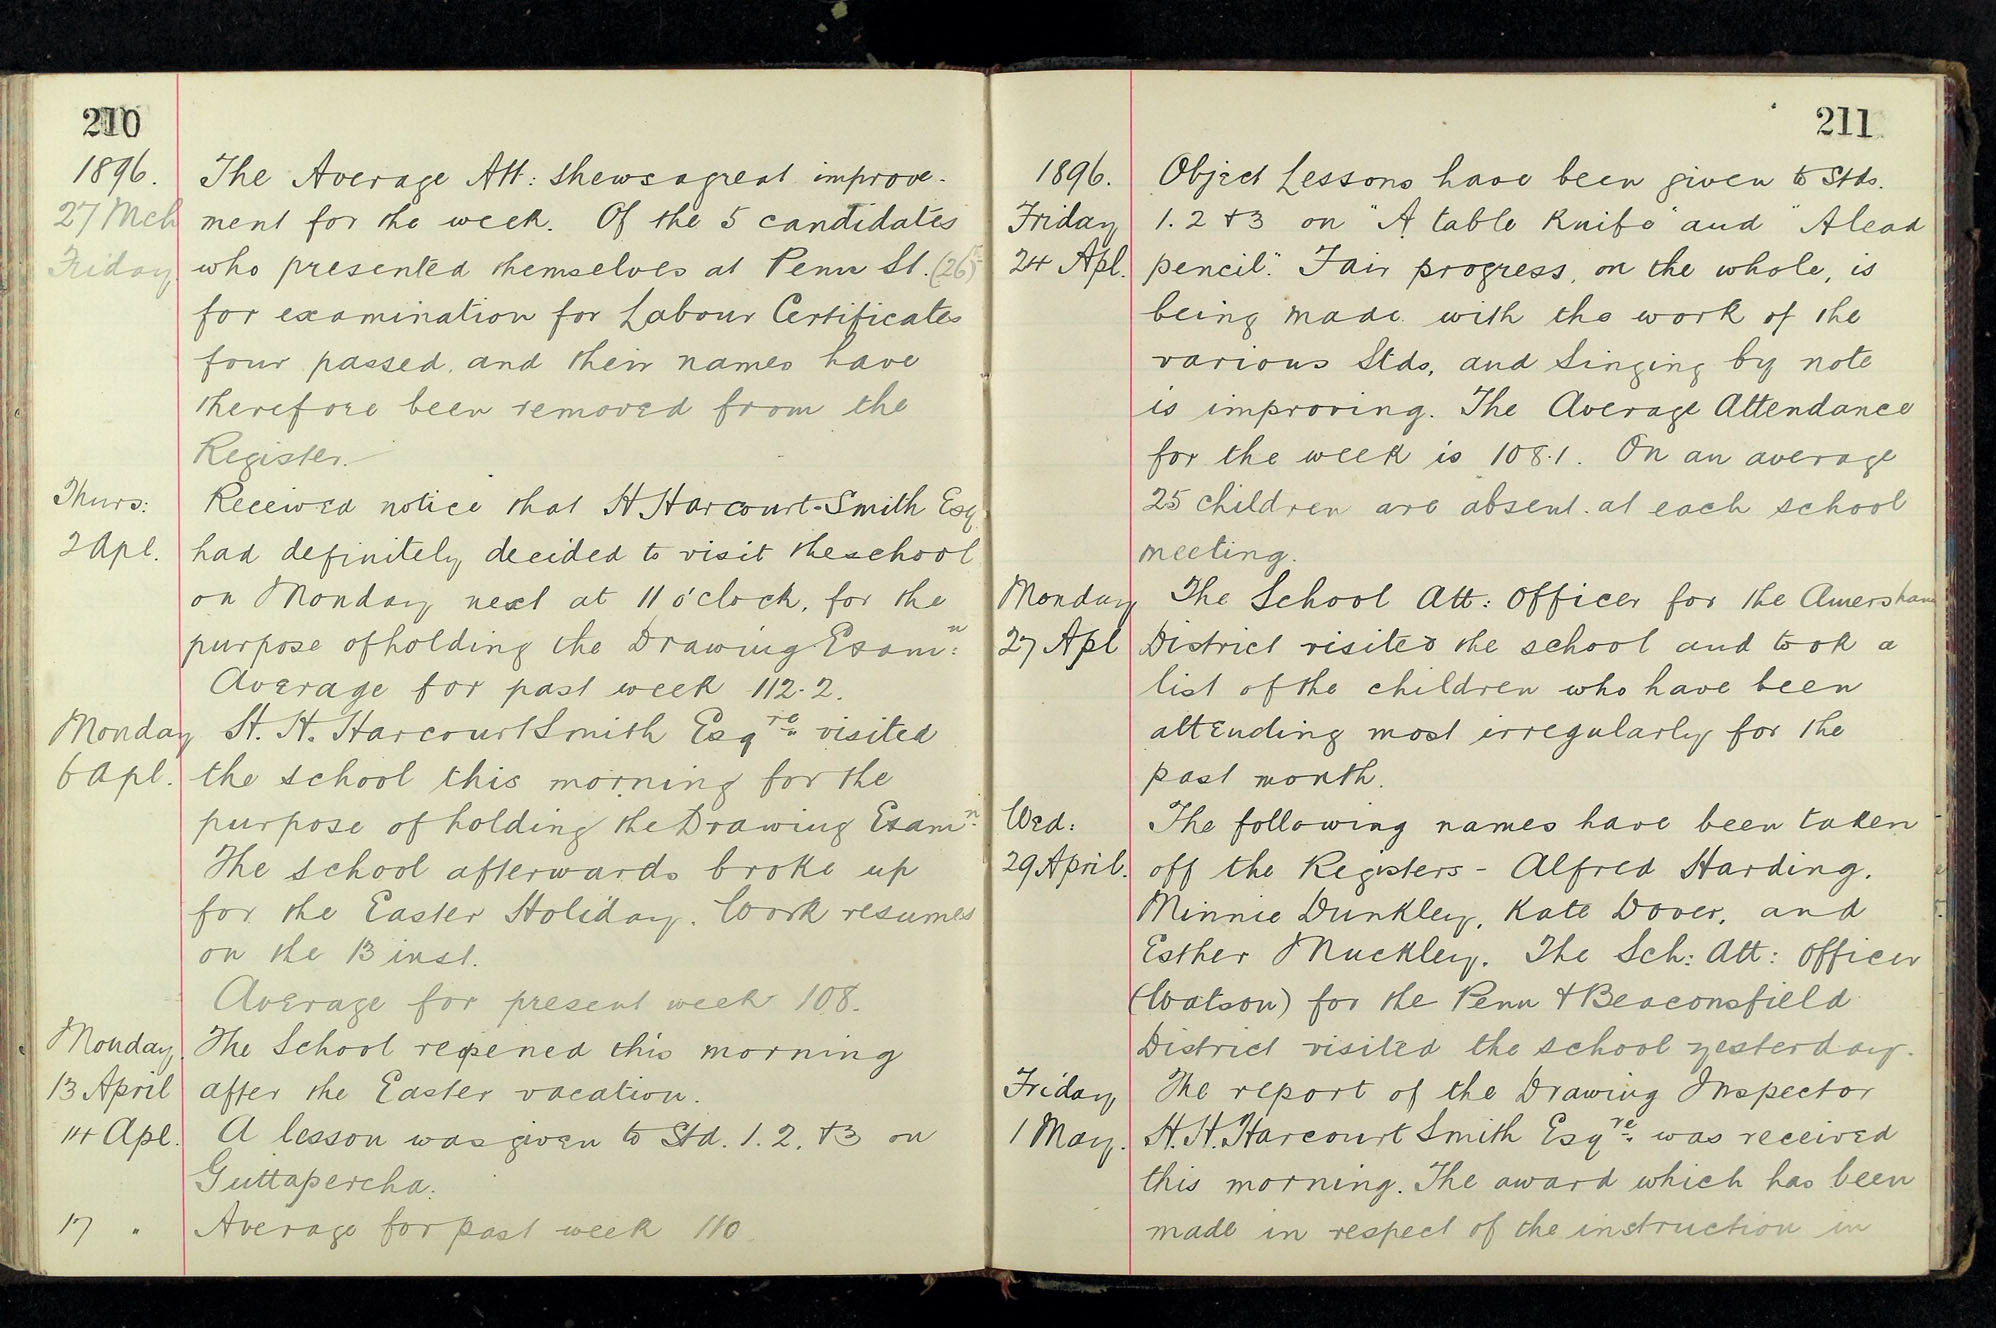 210
1896.
27 Mch
Friday
The Average Att: shews a great improve-
ment for the week. Of the 5 candidates
who presented themselves at Penn St. (26)
for examination for Labour Certificates
four passed, and their names have
therefore been removed from the
Register.
Thurs:
2 Apl.
Received notice that H Harcourt-Smith Esq
had definitely decided to visit the school
on Monday next at 11 o'clock, for the
purpose of holding the Drawing Examn:
Average for past week 112.2.
Monday
6 Apl.
H. H. Harcourt Smith Esqre visited
the school this morning for the
purpose of holding the Drawing Examn:
The school afterwards broke up
for the Easter Holiday. Work resumes
on the 13 inst.
Average for present week 108.
Monday
13 April
The School reopened this morning
after the Easter vacation.
14 Apl.
A lesson was given to Std. 1. 2. & 3 on
Guttapercha.
17 "
Average for past week 110.
211
1896.
Friday
24 Apl.
Object Lessons have been given to Stds.
1. 2 & 3 on "A table knife" and "A lead
pencil". Fair progress, on the whole, is
being made with the work of the
various Stds, and Singing by note
is improving. The Average Attendance
for the week is 108.1. On an average
25 children are absent at each school
meeting.
Monday
27 Apl
The School Att: Officer for the Amersham
District visited the school and took a
list of the children who have been
attending most irregularly for the
past month.
Wed:
29 April.
The following names have been taken
off the Registers - Alfred Harding,
Minnie Dunkley, Kate Dover, and
Esther Muckley. The Sch: Att: Officer
(Watson) for the Penn & Beaconsfield
District visited the school yesterday.
Friday
1 May.
The report of the Drawing Inspector
H. H. Harcourt Smith Esqre was received
this morning. The award which has been
made in respect of the instruction in